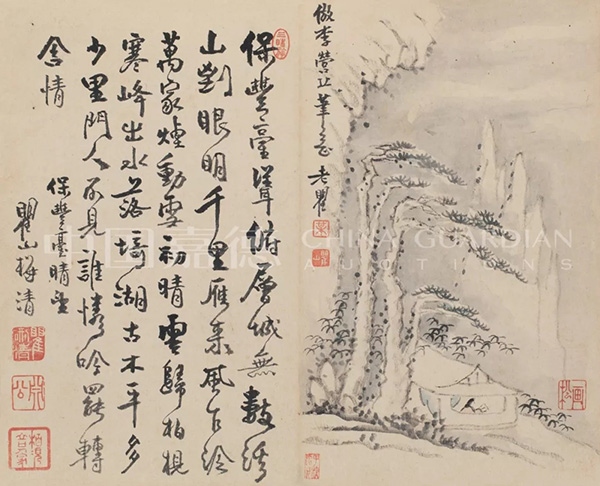 倣李營丘筆意 老瞿
保豐臺聳俯層城無數諸
山到眼明千里雁來風乍冷
萬家煙動雪初晴雲歸柏梘
寒峰出水落漪湖古木平多
少里門人不見誰憐吟罷轉
含情
保豐臺晴望
瞿山梅清
中国嘉德
CHINA GUARDIAN
AUCTIONS